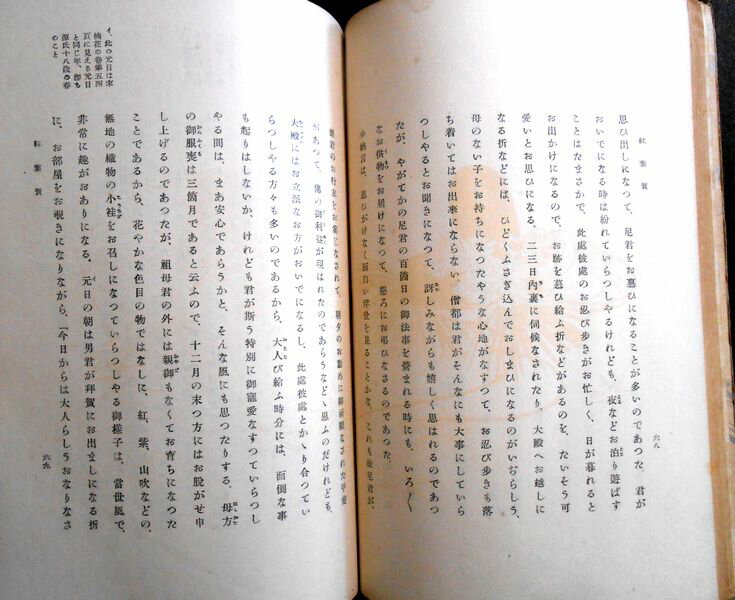 紅葉賀
六八
思ひ出しになつて、尼君をお慕ひになることが多いのであつた。君が
おいでになる時は紛れていらつしやるけれども、夜などお泊り遊ばす
ことはたまさかで、此處彼處のお忍び歩きがお忙しく、日が暮れると
お出かけになるので、お跡を慕ひ給ふ折などがあるのを、たいそう可
愛いとお思ひになる。二三日內裏に伺候なされたり、大殿へお越しに
なる折などには、ひどくふさぎ込んでおしまひになるのがいぢらしう、
母のない子をお持ちになつたやうな心地がなすつて、お忍び歩きも落
ち着いてはお出來にならない。僧都は君がそんなにも大事にしていら
つしやるとお聞きになつて、訝しみながらも嬉しく思はれるのであつ
たが、やがてかの尼君の百箇日の御法事を營まれる時にも、いろ〱
なお供物をお届けになつて、懇ろにお弔ひなさるのであつた
少納言は、思ひがけなく面白い浮世を見ることかな、これも故尼君が、
姫君のお行末をお案じなされて、朝夕のお勤めに御祈願なされた
があつて、佛の御利益が現はれたのであらうなどゝ思ふのだけれども、
大殿にはお立派なお方がおいでになるし、此處彼處とかゝり合つてい
らつしやる方々も多いのであるから、大人び給ふ時分には、面倒な事
も起りはしないか、けれども君が斯う特別に御寵愛なすつていらつし
やる間は、まあ安心であらうかと、そんな風にも思つたりする。母方
の御服喪は三箇月であると云ふので、十二月の末つ方にはお脫がせ申
し上げるのであつたが、祖母君の外には親御もなくてお育ちになつた
ことであるから、花やかな色目の物ではなしに、紅、紫、山吹などの、
無地の織物の小袿をお召しになつていらつしやる御樣子は、當世風で、
非常に趣がおありになる。元日の朝は男君が拜賀にお出ましになる折
に、お部屋をお覗きになりながら、「今日からは大人らしうおなりなさ
紅葉賀
六九
イ、此の元日は末
摘花の卷第五四
頁に見える元日
と同じ年、卽ち
源氏十八歲の春
のこと